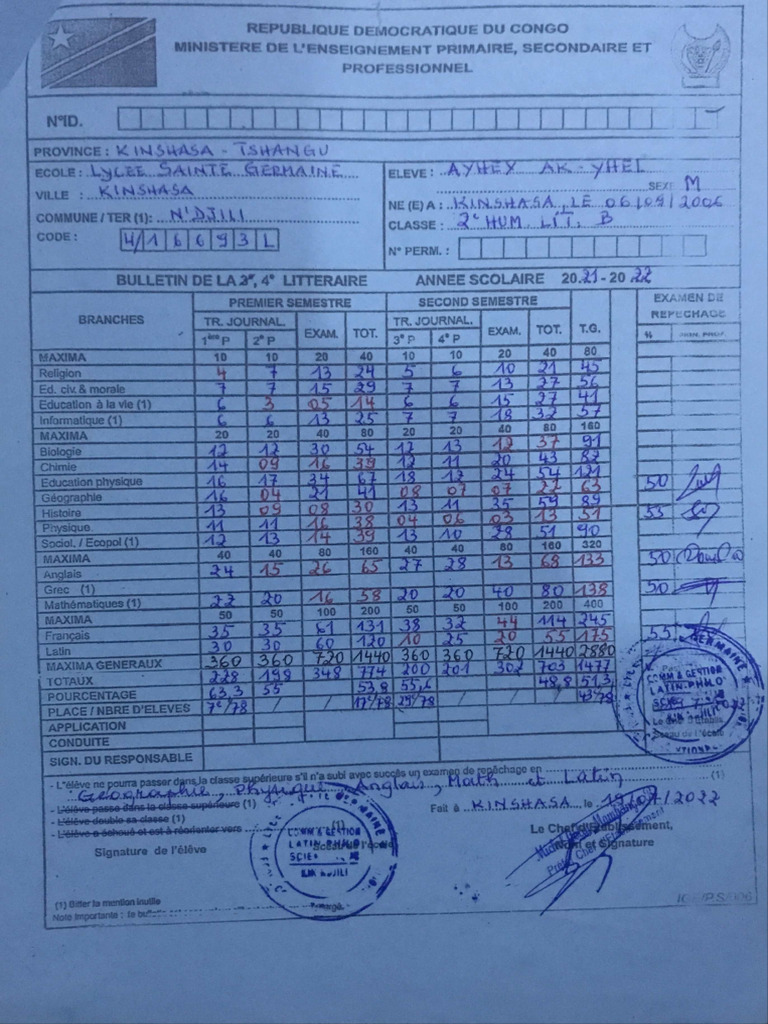 REPUBLIQUE DEMOCRATIQUE DU CONGO
MINISTERE DE L'ENSEIGNEMENT PRIMAIRE, SECONDAIRE ET
PROFESSIONNEL
N°ID.
PROVINCE : KINSHASA - TSHANGU
ECOLE : LYCEE SAINTE GERMAINE
VILLE : KINSHASA
COMMUNE / TER (1) : N'DJILI
CODE : 4/16693L
ELEVE : AYHEY AK-YHEL
SEXE M
NE (E) A : KINSHASA, LE 06/09/2006
CLASSE : 2e HUM. LIT. B
N° PERM. :
BULLETIN DE LA 3e, 4e LITTERAIRE ANNEE SCOLAIRE 2021-2022
BRANCHES PREMIER SEMESTRE SECOND SEMESTRE T.G. EXAMEN DE REPECHAGE
TR. JOURNAL. EXAM. TOT. TR. JOURNAL. EXAM. TOT. %
1ère P 2e P 3e P 4e P
MAXIMA 10 10 20 40 10 10 20 40 80
Religion 4 7 13 24 5 6 10 21 45
Ed. civ. & morale 7 7 15 29 7 7 13 27 56
Education à la vie (1) 6 3 05 14 6 6 15 27 41
Informatique (1) 6 6 13 25 7 7 18 32 57
MAXIMA 20 20 40 80 20 20 40 80 160
Biologie 12 12 30 54 12 13 12 37 91
Chimie 14 09 16 39 12 11 20 43 82
Education physique 16 17 34 67 18 12 24 54 121
Géographie 16 04 21 41 08 07 07 22 63 50
Histoire 13 09 08 30 13 11 35 59 89
Physique 11 11 16 38 04 06 03 13 51 55
Sociol. / Ecopol (1) 12 13 14 39 13 10 28 51 90
MAXIMA 40 40 80 160 40 40 80 160 320
Anglais 24 15 26 65 27 28 13 68 133 50
Grec (1)
Mathématiques (1) 22 20 16 58 20 20 40 80 138 50
MAXIMA 50 50 100 200 50 50 100 200 400
Français 35 35 61 131 38 32 44 114 245
Latin 30 30 60 120 10 25 20 55 175 55
MAXIMA GENERAUX 360 360 720 1440 360 360 720 1440 2880
TOTAUX 228 198 348 774 200 201 302 703 1477
POURCENTAGE 63,3 55 53,8 55,6 48,8 51,3
PLACE / NBRE D'ELEVES 7e/78 / / 17e/78 29e/78 / / / 43/78
APPLICATION
CONDUITE
SIGN. DU RESPONSABLE
- L'élève ne pourra passer dans la classe supérieure s'il n'a subi avec succès un examen de repêchage en (1)
Géographie, Physique, Anglais, Math et Latin
- L'élève passe dans la classe supérieure (1)
- L'élève double sa classe (1)
- L'élève a échoué et est à réorienter vers (1)
Fait à KINSHASA le 19/07/2022
Signature de l'élève
Le Chef d'Etablissement,
Nom et Signature
COMM & GESTION
LATIN-PHILO
(1) Biffer la mention inutile
Note importante : le